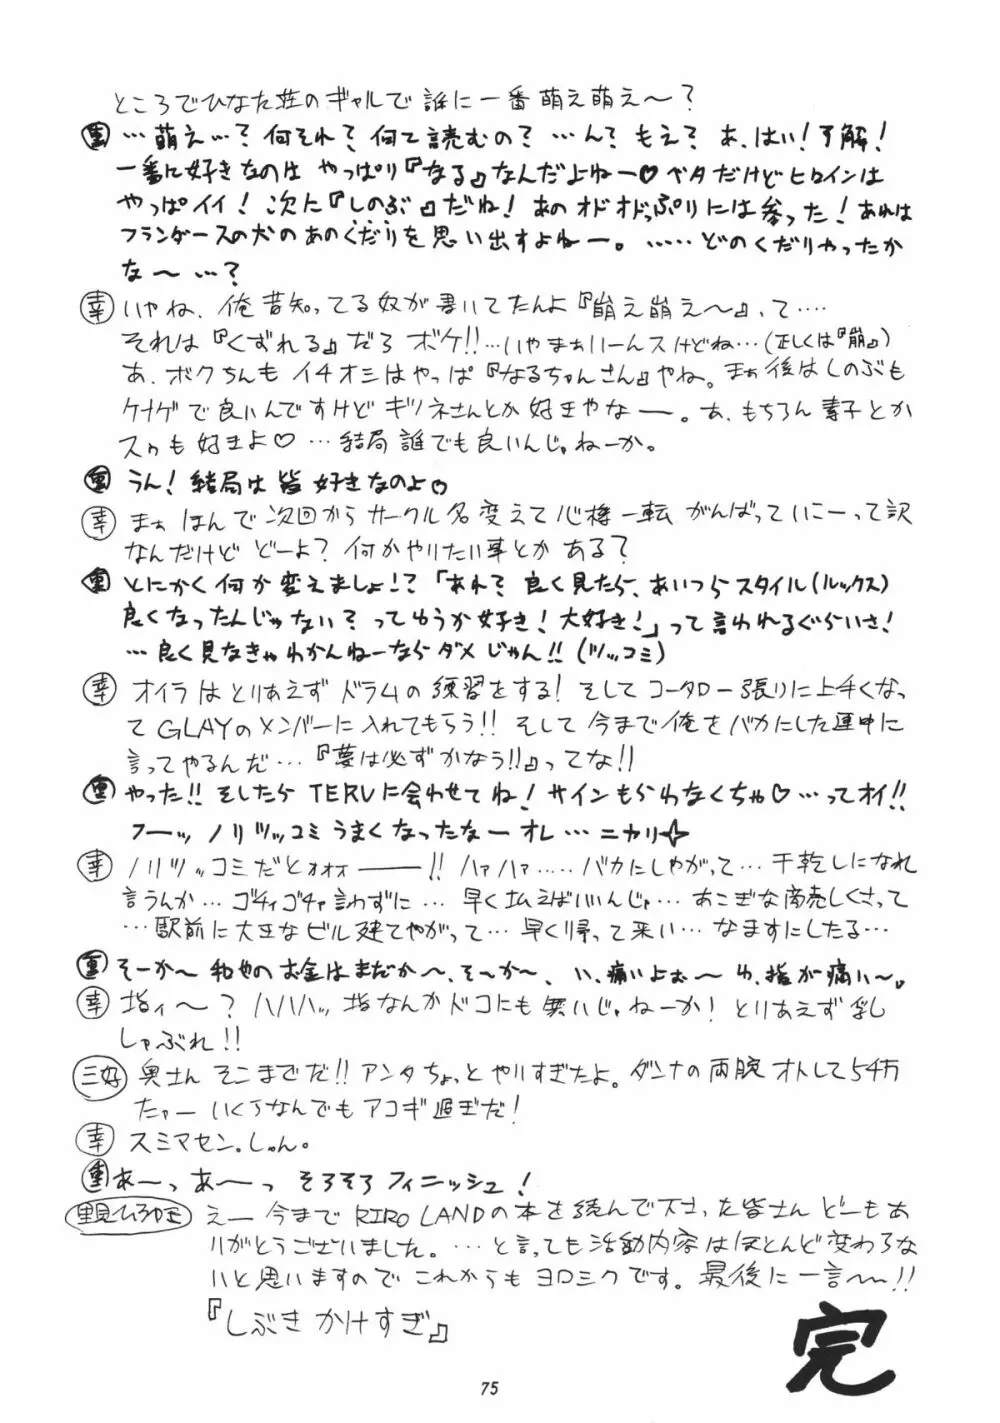 ところでひなた荘のギャルで誰に一番萌え萌え〜?
…萌え…? 何それ? 何て読むの? …ん? もえ? あ、はい! 了解!
一番に好きなのは やっぱり『なる』なんだよねー♡ ベタだけどヒロインは
やっぱイイ! 次に『しのぶ』だね! あのオドオドっぷりには参った! あれは
フランダースの犬のあのくだりを思い出すよねー。……どのくだりやったか
な〜…?
幸 いやね、俺昔知ってる奴が書いてたんよ『崩え崩え〜』って‥‥
それは『くずれる』だろ ボケ!!…いやまぁいーんスけどね…(正しくは『崩』)
あ、ボクちんも イチオシはやっぱ『なるちゃんさん』やね。まぁ後はしのぶも
ケナゲで良いんですけど キツネさんとか 好きやなー。あ、もちろん 素子とか
スゥも好きよ♡ …結局誰でも良いんじゃねーか。
うん! 結局は皆 好きなのよ♡
幸 まぁ ほんで次回からサークル名変えて心機一転 がんばっていこーって訳
なんだけど どーよ? 何かやりたい事とか ある?
とにかく何か変えましょ!?「あれ? 良く見たら、あいつらスタイル(ルックス)
良くなったんじゃない? ってゆうか好き! 大好き!」って言われるぐらいさ!
…良く見なきゃわかんねーならダメじゃん!!(ツッコミ)
幸 オイラはとりあえず ドラムの練習をする! そしてコータロー張りに上手くなっ
て GLAYのメンバーに入れてもらう!! そして今まで俺をバカにした連中に
言ってやるんだ…『夢は必ずかなう!!』ってな!!
やった!! そしたら TERUに会わせてね! サインもらわなくちゃ♡…ってオイ!!
フーッ ノリツッコミうまくなったなー オレ…ニカリ
幸 ノリツッコミだとォォォ――!! ハァハァ‥‥バカにしやがって…干乾しになれ
言うんか…ゴチャゴチャ言わずに…早く払えばいいんじゃ…あこぎな商売しくさって
…駅前に大きなビル建てやがって…早く帰って来い…なますにしたる…
そーか〜 和也のお金はまだか〜、そ〜か〜、い、痛いよぉ〜ゆ、指が痛い〜。
幸 指ィ〜? ハハハッ、指なんかドコにも無いじゃねーか! とりあえず乳
しゃぶれ!!
三好 奥さん そこまでだ!! アンタちょっとやりすぎたよ。ダンナの両腕オトして54万
たァー いくらなんでもアコギ過ぎだ!
幸 スミマセン。しゅん。
あーっ あ〜っ そろそろフィニッシュ!
里見ひろゆき えー 今までRIRO LANDの本を読んで下さった皆さんどーもあ
りがとうございました。…と言っても活動内容はほとんど変わらな
いと思いますので これからもヨロシクです。最後に一言〜!!
『しぶきかけすぎ』
完
75